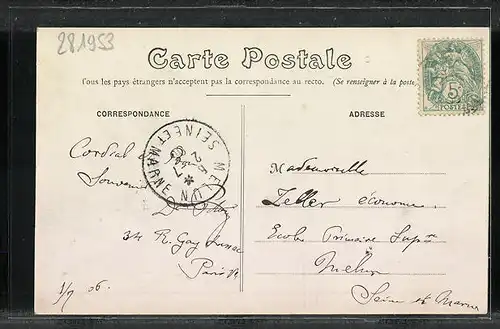 281953
Carte Postale
Tous les pays étrangers n'acceptent pas la correspondance au recto. (Se renseigner à la poste)
CORRESPONDANCE
ADRESSE
5
POSTES
MELUN
SEINE ET MARNE
Cordial
Souvenir
34 R. Gay Lussac
Paris
1/7 06.
Mademoiselle
Zeller économe
Ecole Primaire Supre
Melun
Seine et Marne